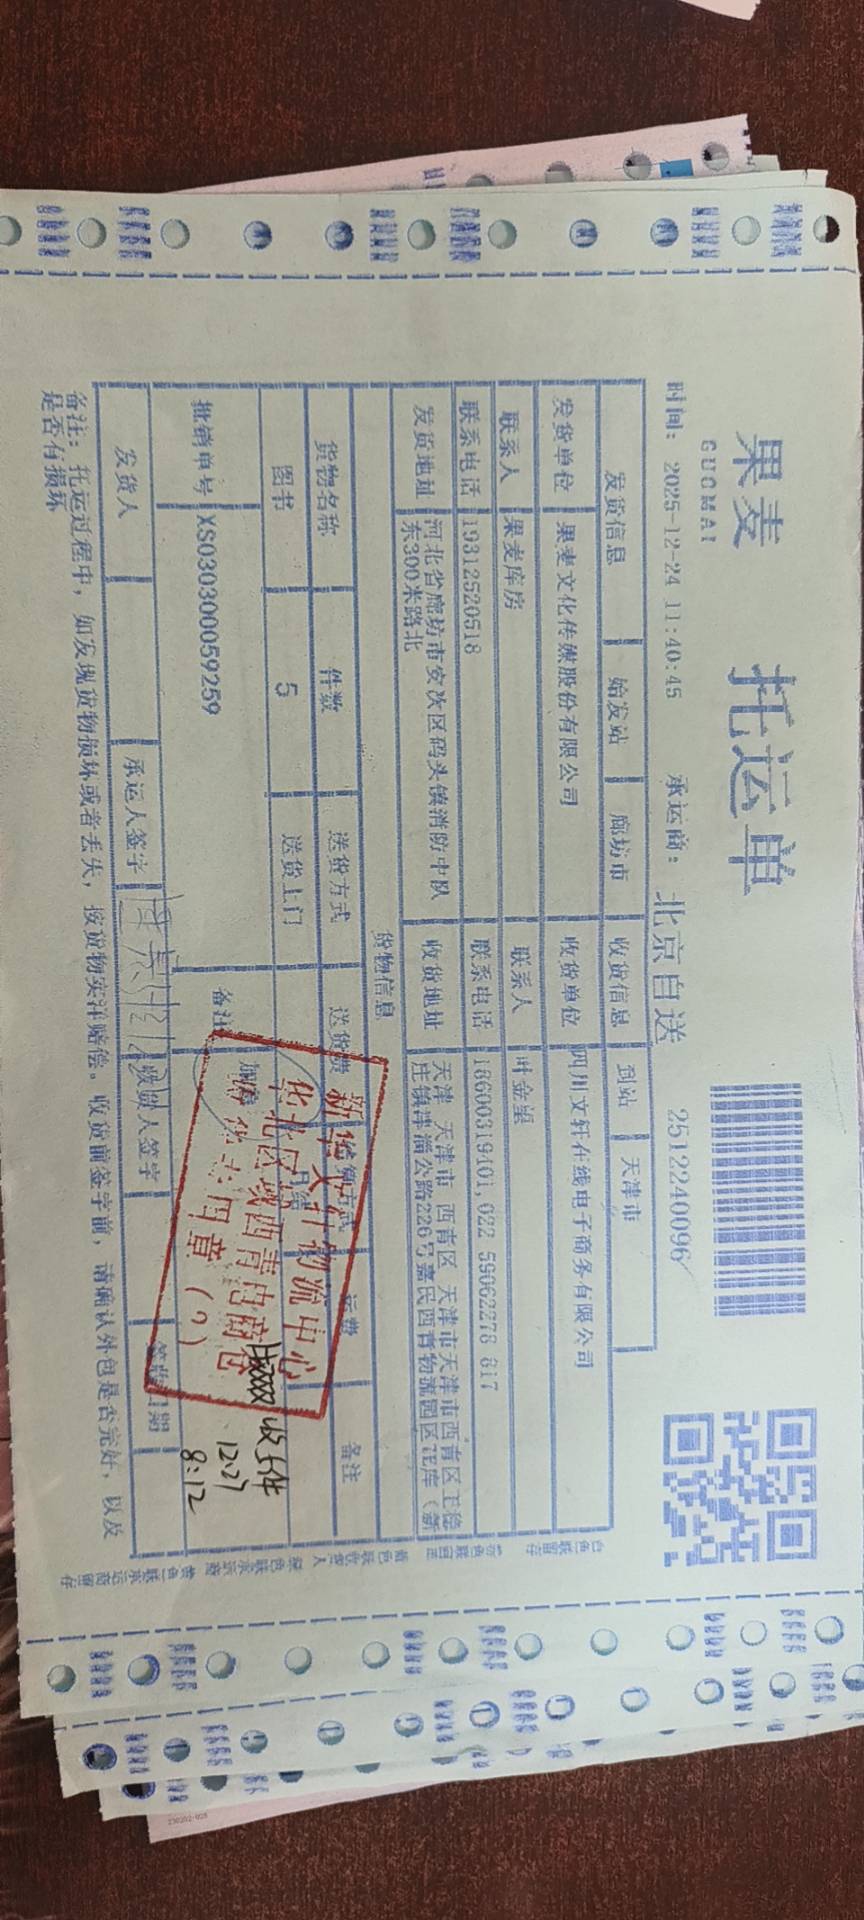 果麦
GUOMAI
托运单
时间: 2025-12-24 11:40:45 承运商: 北京自送 2512240096
发货信息 始发站 廊坊市 收货信息 到站 天津市
发货单位 果麦文化传媒股份有限公司 收货单位 四川文轩在线电子商务有限公司
联系人 果麦库房 联系人 叶金望
联系电话 19312520518 联系电话 18600319401,022 59062278 817
发货地址 河北省廊坊市安次区码头镇消防中队东300米路北 收货地址 天津 天津市 西青区 天津市天津市西青区王稳庄镇津淄公路226号嘉民西青物流园区正库（新
货物信息
货物名称 件数 送货方式 送货费 结算方式 运费 备注
图书 5 送货上门 月结
批销单号 XS030300059259 备注
新华文轩物流中心
华北区域西青电商仓
收货专用章（2）
收5件
12.27
8:12
发货人 承运人签字 收货人签字 签收日期
备注: 托运过程中，如发现货物损坏或者丢失，按货物实洋赔偿。收货前签字前，请确认外包是否完好，以及
是否有损坏
白色联留存